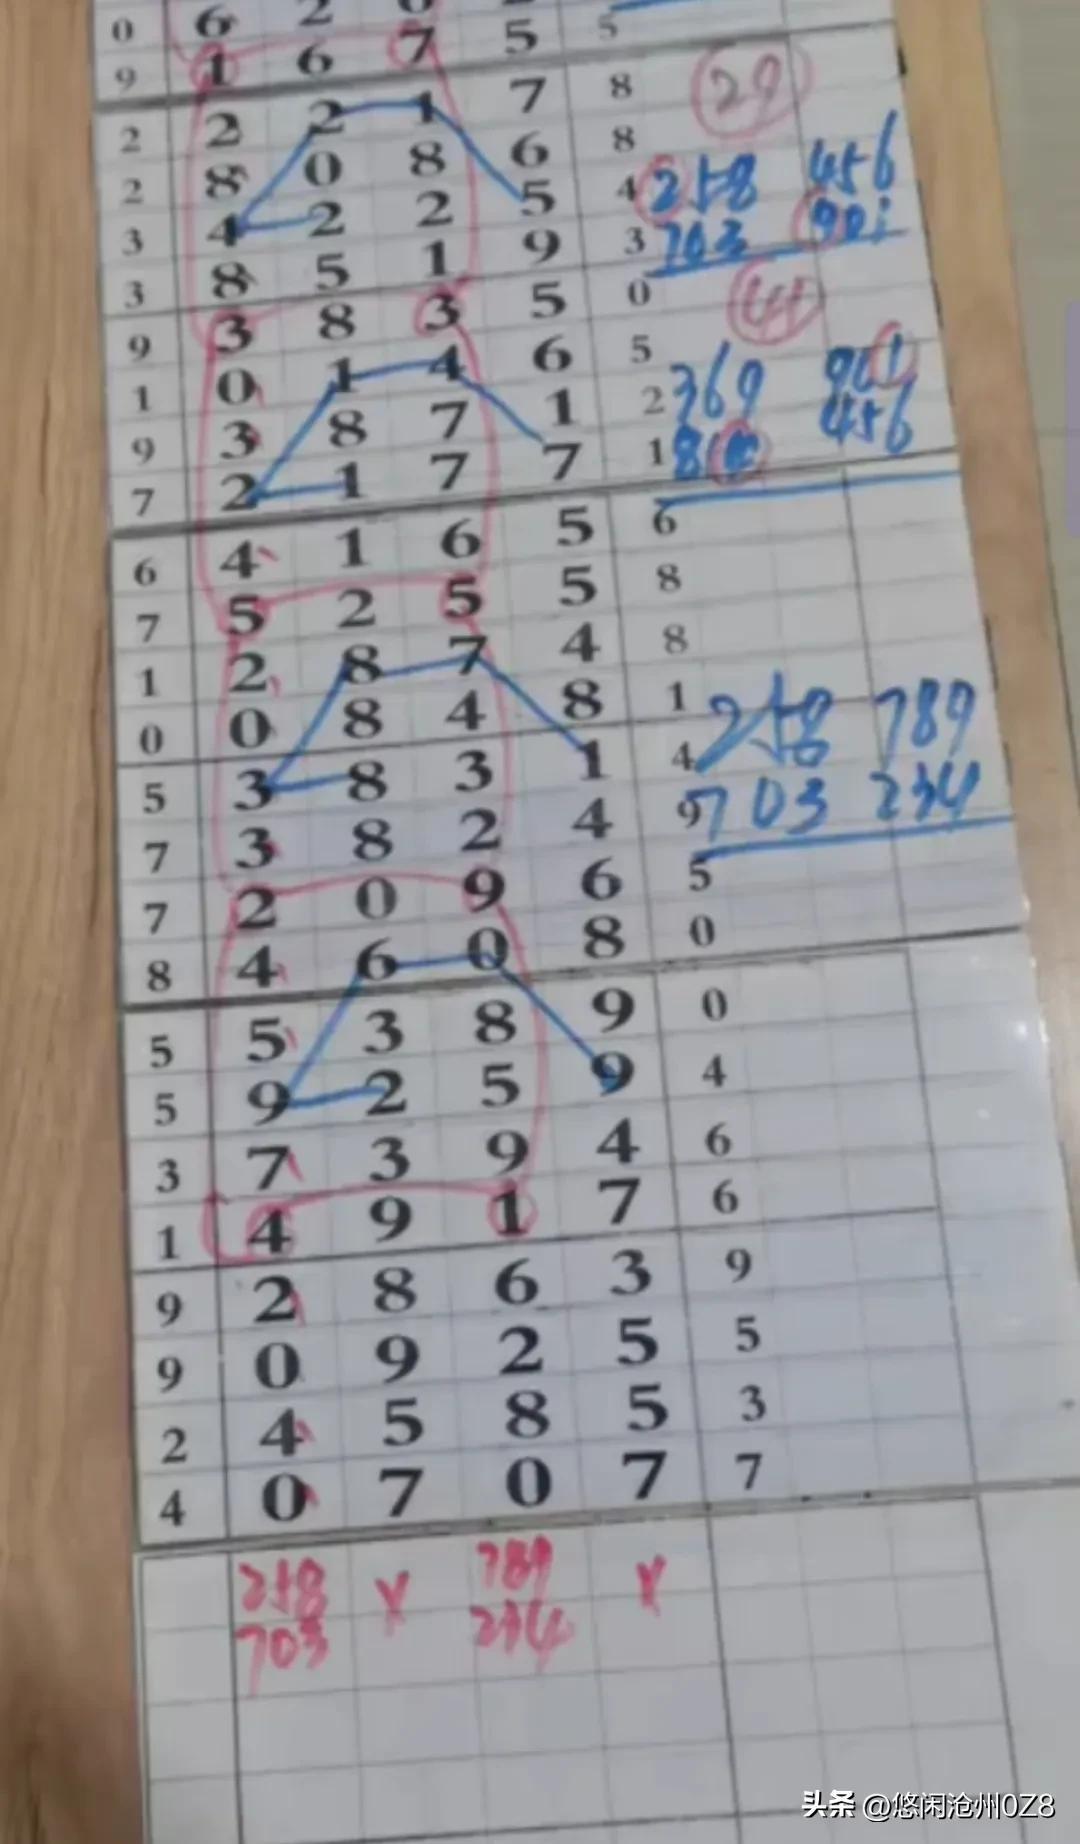 0 6 2 5 5
9 1 6 7 5
2 2 2 1 7 8 29
2 8 0 8 6 8
3 4 2 2 5 4 258 456
3 8 5 1 9 3 703 901
9 3 8 3 5 0 44
1 0 1 4 6 5
9 3 8 7 1 2 369 901
7 2 1 7 7 1 456
6 4 1 6 5 6
7 5 2 5 5 8
1 2 8 7 4 8
0 0 8 4 8 1 258 789
5 3 8 3 1 4
7 3 8 2 4 9 703 234
7 2 0 9 6 5
8 4 6 0 8 0
5 5 3 8 9 0
5 9 2 5 9 4
3 7 3 9 4 6
1 4 9 1 7 6
9 2 8 6 3 9
9 0 9 2 5 5
2 4 5 8 5 3
4 0 7 0 7 7
258 X 789 X
703 234
头条 @悠闲沧州0Z8